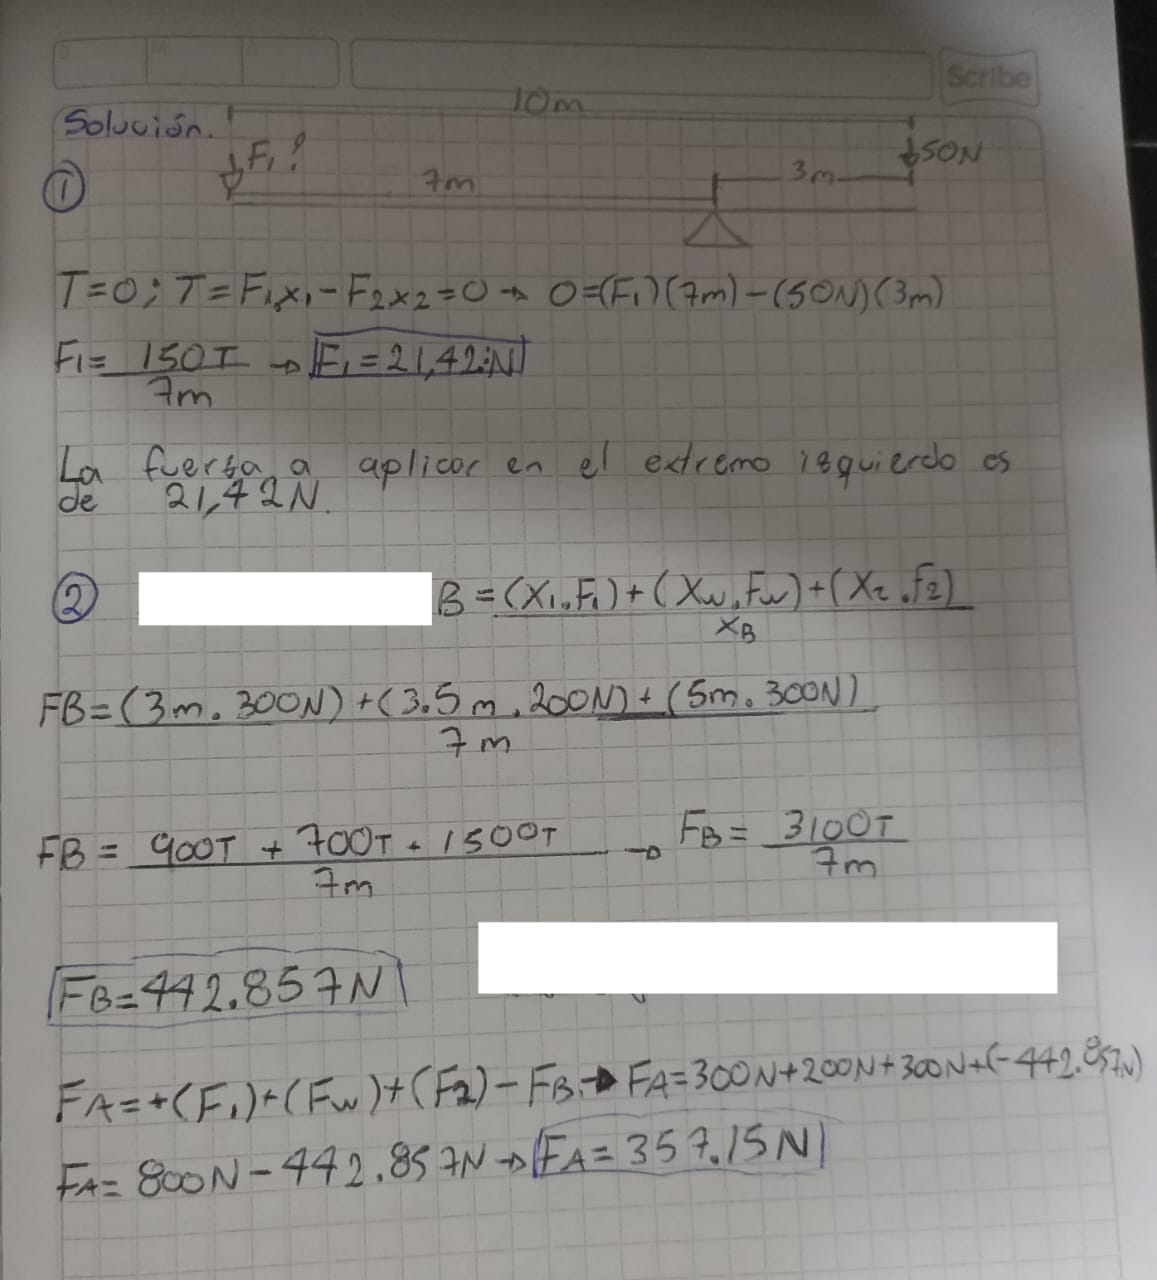 Scribe
10m
Solución.
F₁?
50N
①
7m
3m
T=0; T=F₁x₁-F₂x₂=0→ 0=(F₁)(7m)-(50N)(3m)
F₁= 150T/7m → F₁=21,42N
La fuerza a aplicar en el extremo izquierdo es
de 21,42N.
② B=(X₁.F₁)+(Xw.Fw)+(X₂.f₂)/XB
FB=(3m.300N)+(3.5m.200N)+(5m.300N)/7m
FB= 900T + 700T + 1500T/7m → FB= 3100T/7m
FB=442.857N
FA=+(F₁)+(Fw)+(F₂)-FB→ FA=300N+200N+300N+(-442.857N)
FA= 800N-442.857N→ FA=357.15N